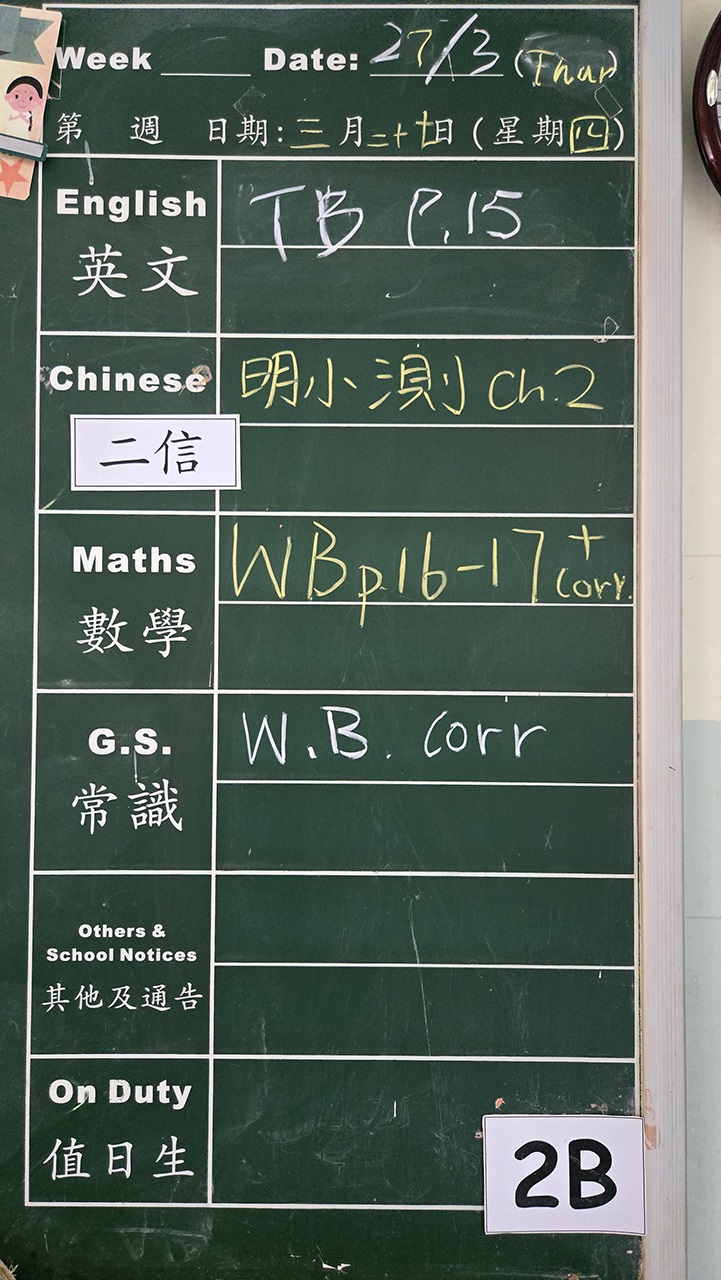 Week ____ Date: 27/3 (Thur)
第 週 日期:三月二十七日(星期四)
English TB P.15
英文
Chinese 明小測 ch.2
二信
Maths WB p16-17 + corr.
數學
G.S. W.B. corr
常識
Others &
School Notices
其他及通告
On Duty
值日生
2B